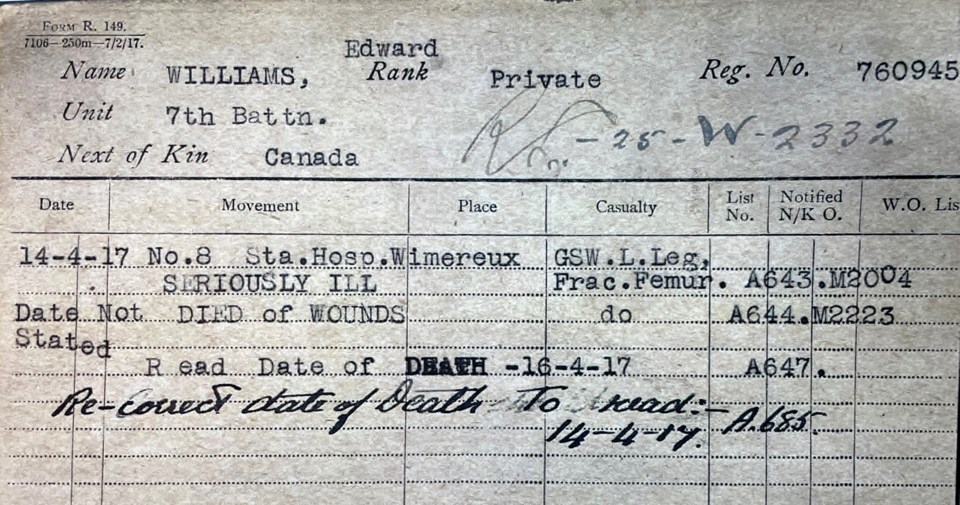 FORM R. 149.
7106—250m—7/2/17.
Name WILLIAMS, Edward Rank Private Reg. No. 760945
Unit 7th Battn.
-25-W-2332
Next of Kin Canada
Date Movement Place Casualty List No. Notified N/K O. W.O. Lis
14-4-17 No.8 Sta.Hosp.Wimereux GSW.L.Leg,
SERIOUSLY ILL Frac.Femur. A643.M2004
Date Not DIED of WOUNDS do A644.M2223
Stated
R ead Date of DEATH -16-4-17 A647.
Re-correct date of Death To read:- A.685.
14-4-17.